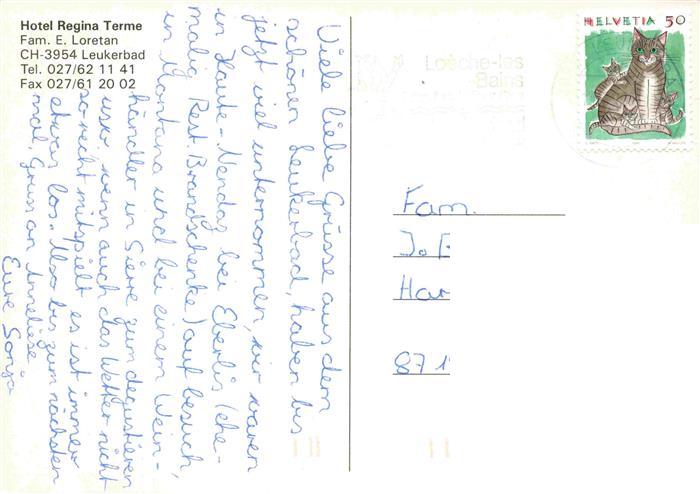 Hotel Regina Terme
Fam. E. Loretan
CH-3954 Leukerbad
Tel. 027/62 11 41
Fax 027/61 20 02
Viele liebe Grüsse aus dem
schönen Leukerbad, haben bis
jetzt viel unternommen, wir waren
in Haute-Nendaz bei Eberlis (ehe-
malig Rest. Brandschenke) auf besuch,
in Montana und bei einem Wein-
händler in Sierre zum degustieren
usw. wenn auch das Wetter nicht
so recht mitspielt es ist immer
etwas los. Also bis zum nächsten
mal, Gruss an Anneliese
Eure Sonja
HELVETIA 50
Loèche-les
Bains
Fam.
Jo
Har
871